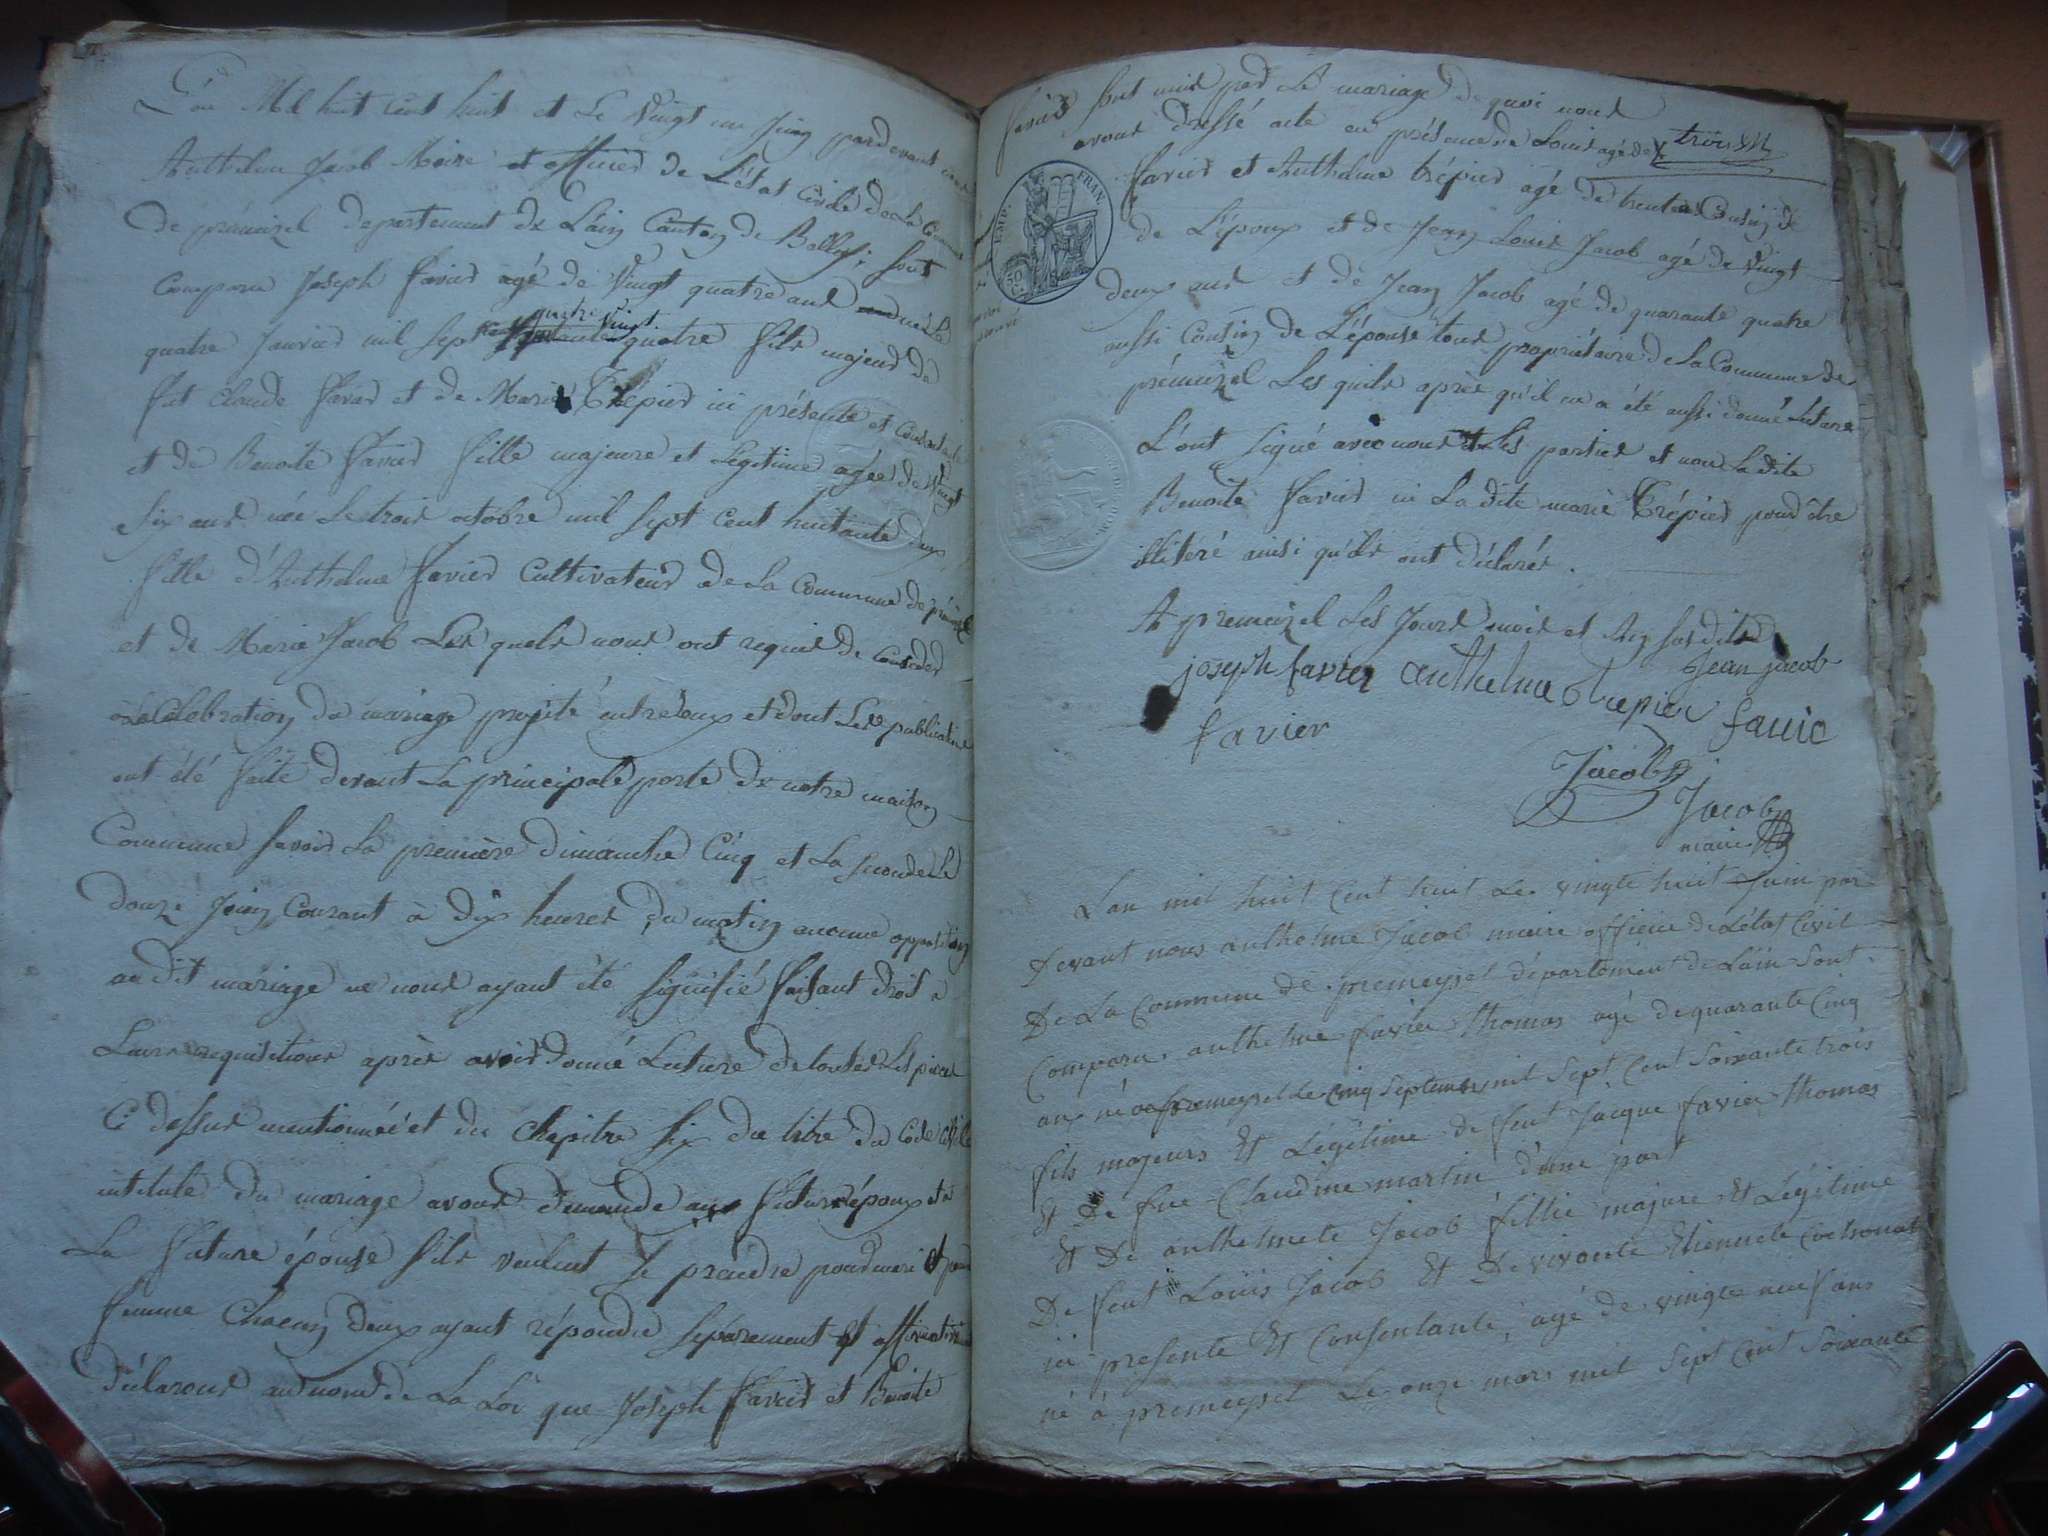 L'an Mil huit cent huit et le Vingt un Juin pardevant nous
Anthelme Jacob Maire et officier de L'état Civile de La Commune
de prémeizel departement de L'ain Canton de Belley, sont
Comparu Joseph favier agé de Vingt quatre ans né Le
quatre Janvier mil sept cent quatre Vingt quatre fils majeur de
fut Claude favier et de Marie Trépier ici présente et Consentante
et de Benoite favier fille majeure et Legitime agée de Vingt
Six ans née Le trois octobre mil sept cent huitante deux
fille d'Anthelme favier Cultivateur de La Commune de prémeizel
et de Marie Jacob Les quels nous ont requis de
a La Célébration de mariage projeté entre eux et dont Les publications
ont été faite devant La principale porte de notre maison
Commune savoir La première dimanche Cinq et La Seconde Le
douze Juin Courant à dix heures du matin aucune opposition
au dit mariage ne nous ayant été signifié faisant droit a
Leurs requisitions après avoir donné Lecture de toutes Les pieces
Ci dessus mentionnée et du Chapitre Six du titre du Code Civile
intitulé du mariage avons demandé au futur époux et a
La future épouse s'ils veulent se prendre pour mari et pour
femme Chacun d'eux ayant répondu séparement et affirmative
déclarons au nom de La Loi que Joseph favier et Benoite
favier sont unis par Le mariage de quoi nous
avons dressé acte en présence de Louis agé de trois
favier et Anthelme trépier agé de trente Cousin de
de L'époux et de Jean Louis Jacob agé de Vingt
deux ans et de Jean Jacob agé de quarante quatre
aussi Cousin de L'épouse tous propriétaire de La Commune de
prémeizel Les quels après qu'il en a été aussi donné Lecture
L'ont signé avec nous et Les parties et non La dite
Benoite favier ni La dite marie Trépier pour être
illiteré ainsi qu'ils ont déclarés.
A premeizel Les Jours mois et An susdits
EMP. FRAN.
joseph favier anthelme trepier Jean jacob
favier favie
Jacob
Jacob
maire
L'an mil huit Cent huit Le vingte huit Juin par
Devant nous anthelme Jacob maire officie de L'état Civil
De La Commune de premeysel département de L'ain Sont
Comparu anthelme favier thomas agé de quarante Cinq
ans né a premeysel Le Cinq Septembre mil Sept Cent Soixante trois
fils majeurs Et Légitime de feut Jacque favier thomas
Et De fue Claudine martin d'une part
Et De anthelmete Jacob fillie majure Et Légitime
De feut Loüis Jacob Et De vivante Etiennete
ici presente Et Consentante, agé de vingte neuf ans
né à premeysel Le onze mars mil Sept Cent Soixante